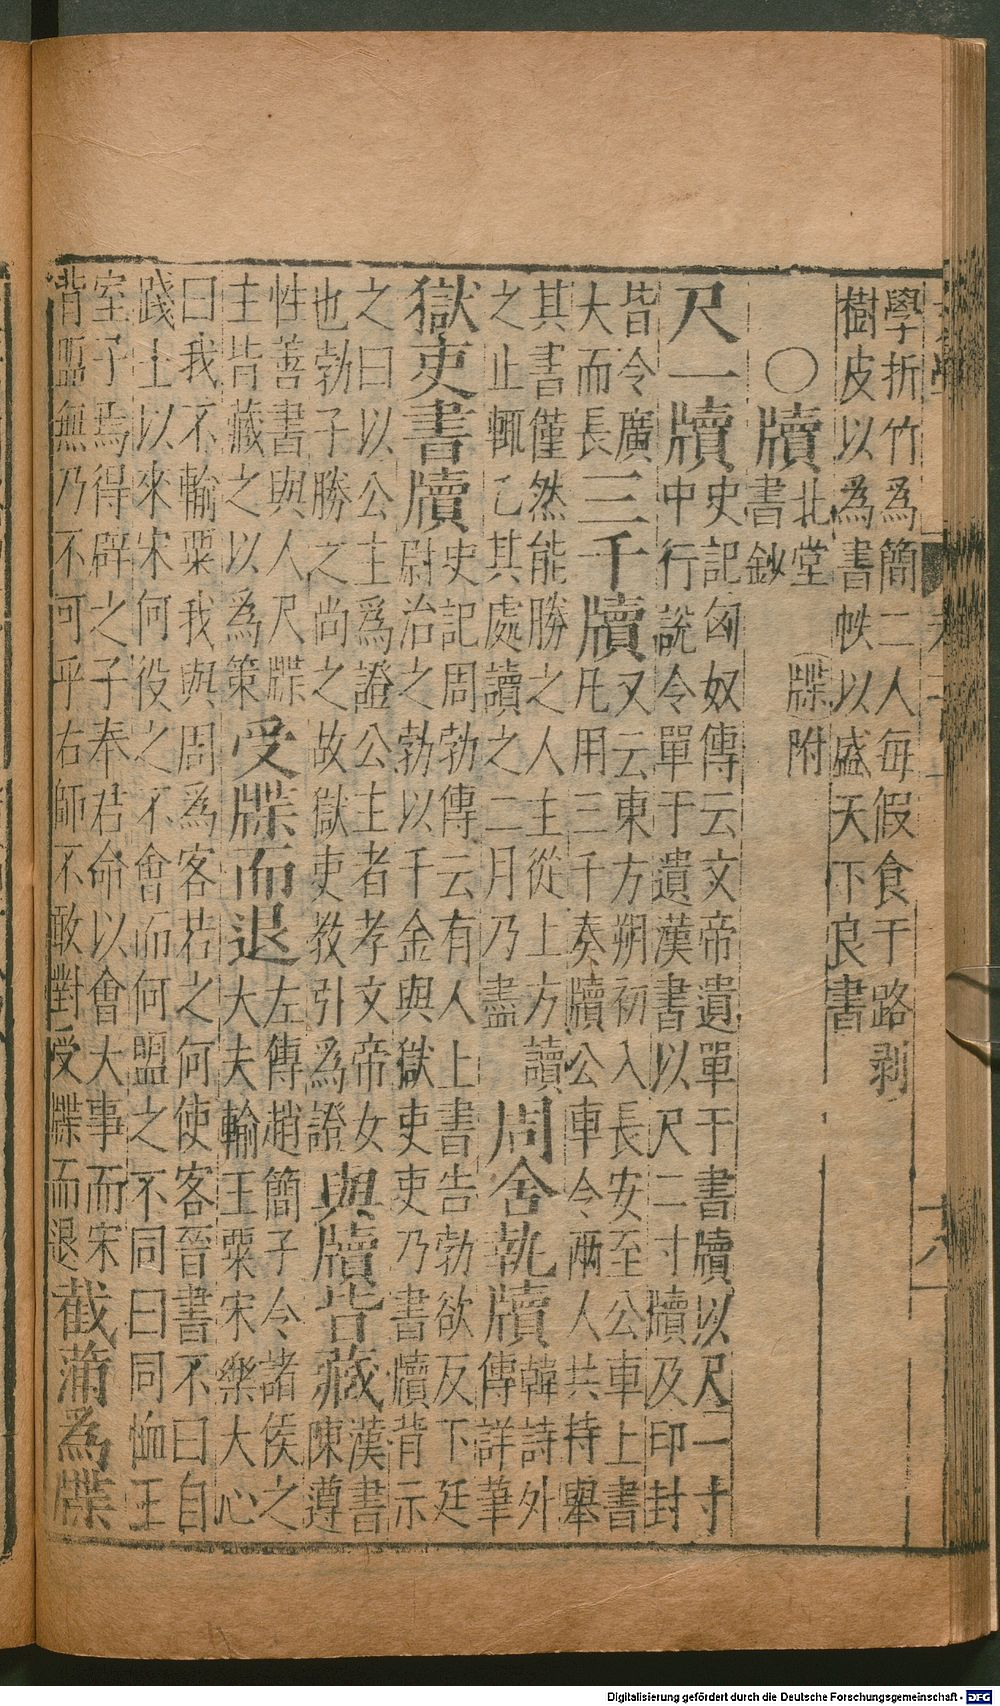 學折竹爲簡二人每假食于路剥
樹皮以爲書帙以盛天下良書
○牘北堂
書鈔
牒附
尺一牘史記匈奴傳云文帝遺單于書牘以尺一寸
中行說令單于遺漢書以尺二寸牘及印封
皆令廣
大而長
三千牘又云東方朔初入長安至公車上書
凡用三千奏牘公車令兩人共持舉
其書僅然能勝之人主從上方讀
之止輒乙其處讀之二月乃盡
周舍執牘韓詩外
傳詳華
獄吏書牘史記周勃傳云有人上書告勃欲反下廷
尉治之勃以千金與獄吏吏乃書牘背示
之曰以公主爲證公主者孝文帝女
也勃子勝之尚之故獄吏教引爲證
與牘皆藏漢書
陳遵
性善書與人尺牒
主皆藏之以爲策
受牒而退左傳趙簡子令諸侯之
大夫輸王粟宋樂大心
曰我不輸粟我與周爲客若之何使客晉書不曰自
踐土以來宋何役之不會而何盟之不同曰同恤王
室子焉得辟之子奉君命以會大事而宋
背盟無乃不可乎右師不敢對受牒而退
截蒲爲牒
Digitalisierung gefördert durch die Deutsche Forschungsgemeinschaft - DFG